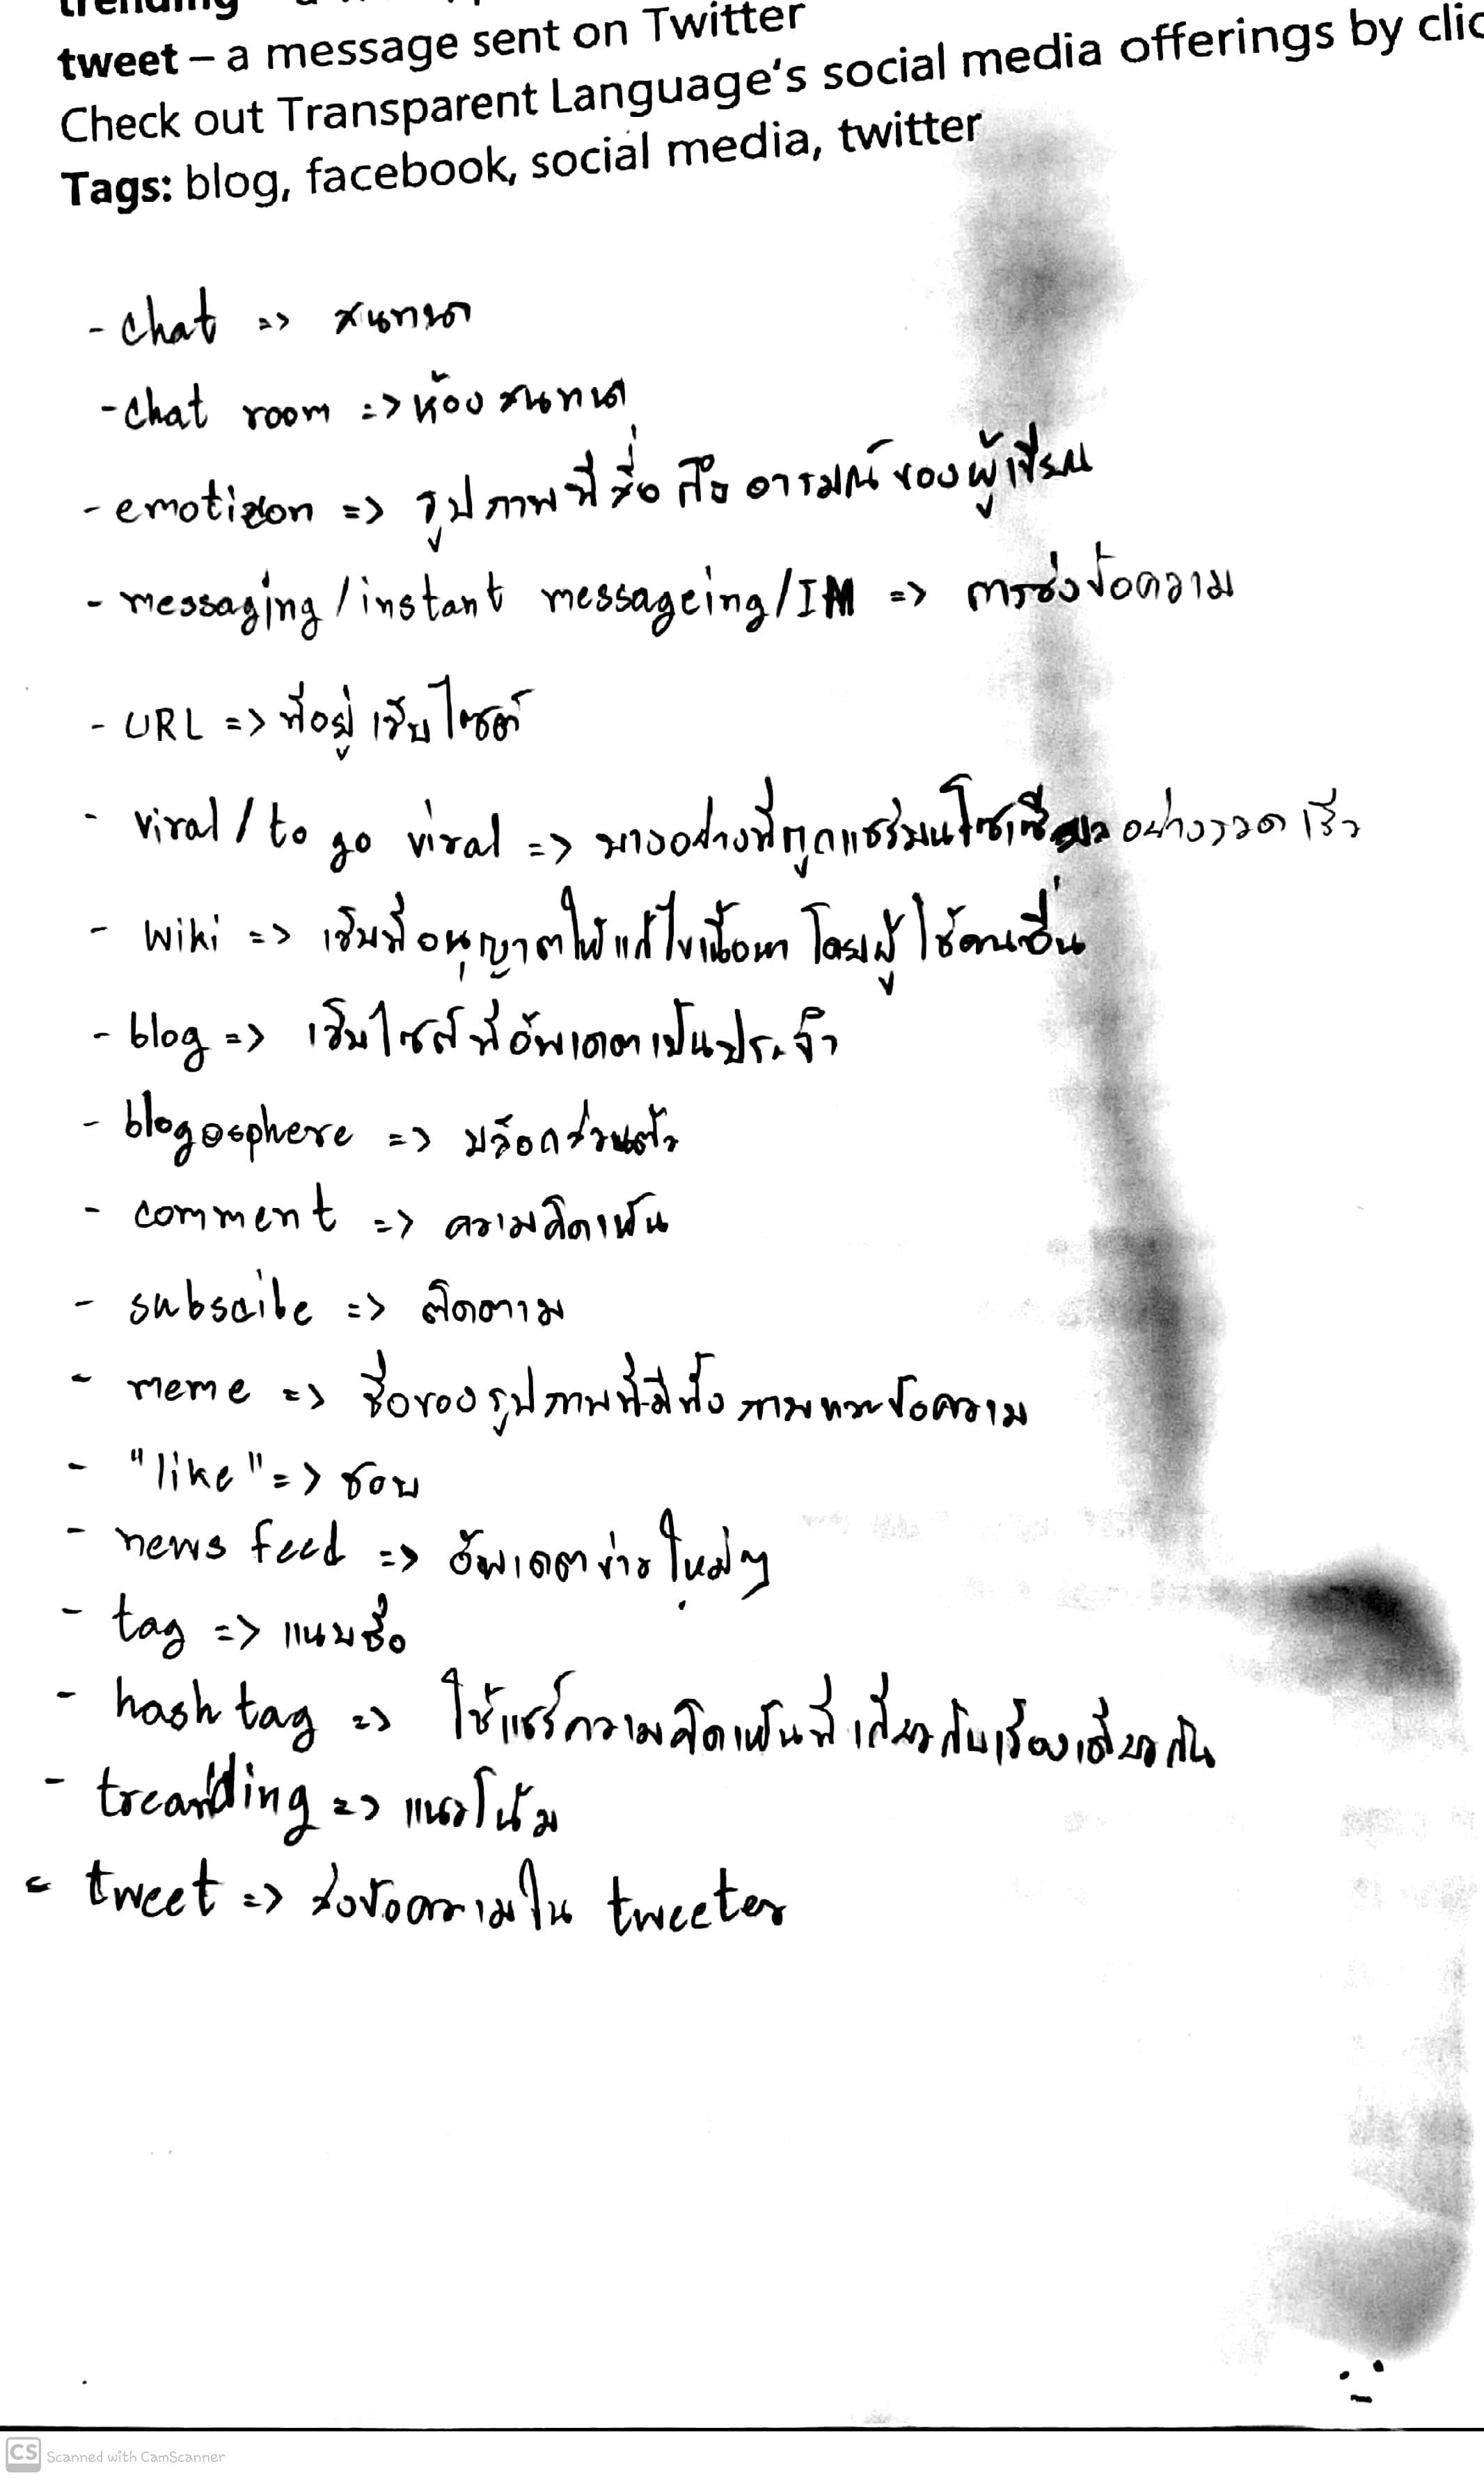 trending
tweet – a message sent on Twitter
Check out Transparent Language's social media offerings by clic
Tags: blog, facebook, social media, twitter
- chat => สนทนา
- chat room => ห้องสนทนา
- emoticon => รูปภาพที่สื่อถึงอารมณ์ของผู้เขียน
- messaging / instant messageing / IM => การส่งข้อความ
- URL => ที่อยู่เว็บไซต์
- viral / to go viral => บางอย่างที่ถูกแชร์บนโซเชียลอย่างรวดเร็ว
- wiki => เว็บที่อนุญาตให้แก้ไขเนื้อหาโดยผู้ใช้คนอื่น
- blog => เว็บไซต์ที่อัพเดตเป็นประจำ
- blogosphere => บล็อกส่วนตัว
- comment => ความคิดเห็น
- subscibe => ติดตาม
- meme => ชื่อของรูปภาพที่มีทั้งภาพและข้อความ
- "like" => ชอบ
- news feed => อัพเดตข่าวใหม่ๆ
- tag => แนบชื่อ
- hash tag => ใช้แชร์ความคิดเห็นที่เกี่ยวกับเรื่องเดียวกัน
- => แนวโน้ม
- tweet => ส่งข้อความใน tweeter
CS Scanned with CamScanner